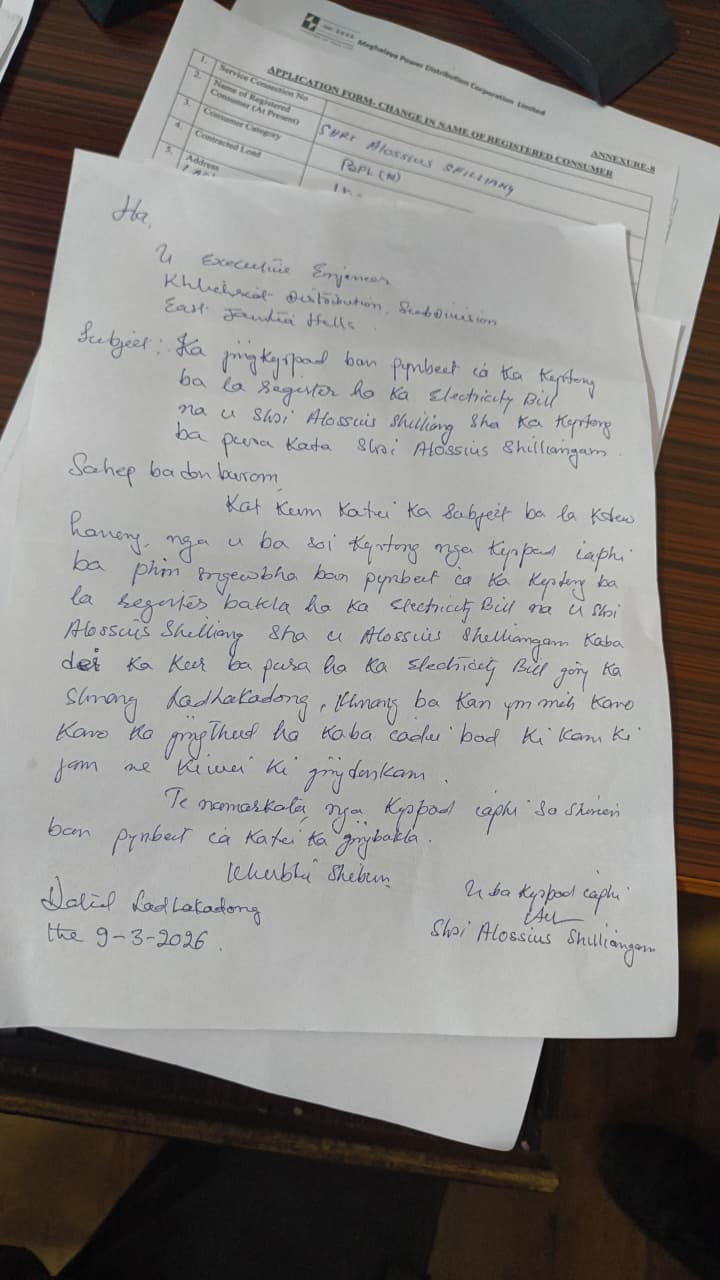 Meghalaya Power Distribution Corporation Limited
ANNEXURE-8
APPLICATION FORM- CHANGE IN NAME OF REGISTERED CONSUMER
1. Service Connection No
2. Name of Registered Consumer (At Present)
SHRI ALOSSIUS SHILLIANG
3. Consumer Category
BPL (M)
4. Contracted Load
5. Address
Ha,
U Executive Engeneer
Khliehriat Distribution, Subdivision
East Jaintia Hills.
Subject: Ka jingkyrpad ban pynbeit ïa ka kyrteng
ba la register ha ka Electricity Bill
na u Shri Alossius Shilliang sha ka kyrteng
ba pura kata Shri Alossius Shilliangam.
Sahep badon burom,
Kat kum katei ka subject ba la kdew
haneng, nga u ba soi kyrteng nga kyrpad ïaphi
ba phin sngewbha ban pynbeit ïa ka kyrteng ba
la register bakla ha ka Electricity Bill na u Shri
Alossius Shilliang sha u Alossius Shilliangam kaba
dei ka kur ba pura ha ka Electricity Bill jong ka
Shnong Ladhakadong, khnang ba kan ym mih kano
kano ka jingthud ha kaba ïadei bad ki kam ki
jam ne kiwei ki jingdonkam.
Te namarkata, nga kyrpad ïaphi sa shisien
ban pynbeit ïa katei ka jingbakla.
Khublei Shibun,
U ba kyrpad ïaphi
Shri Alossius Shilliangam
Dated Ladhakadong
the 9-3-2026.